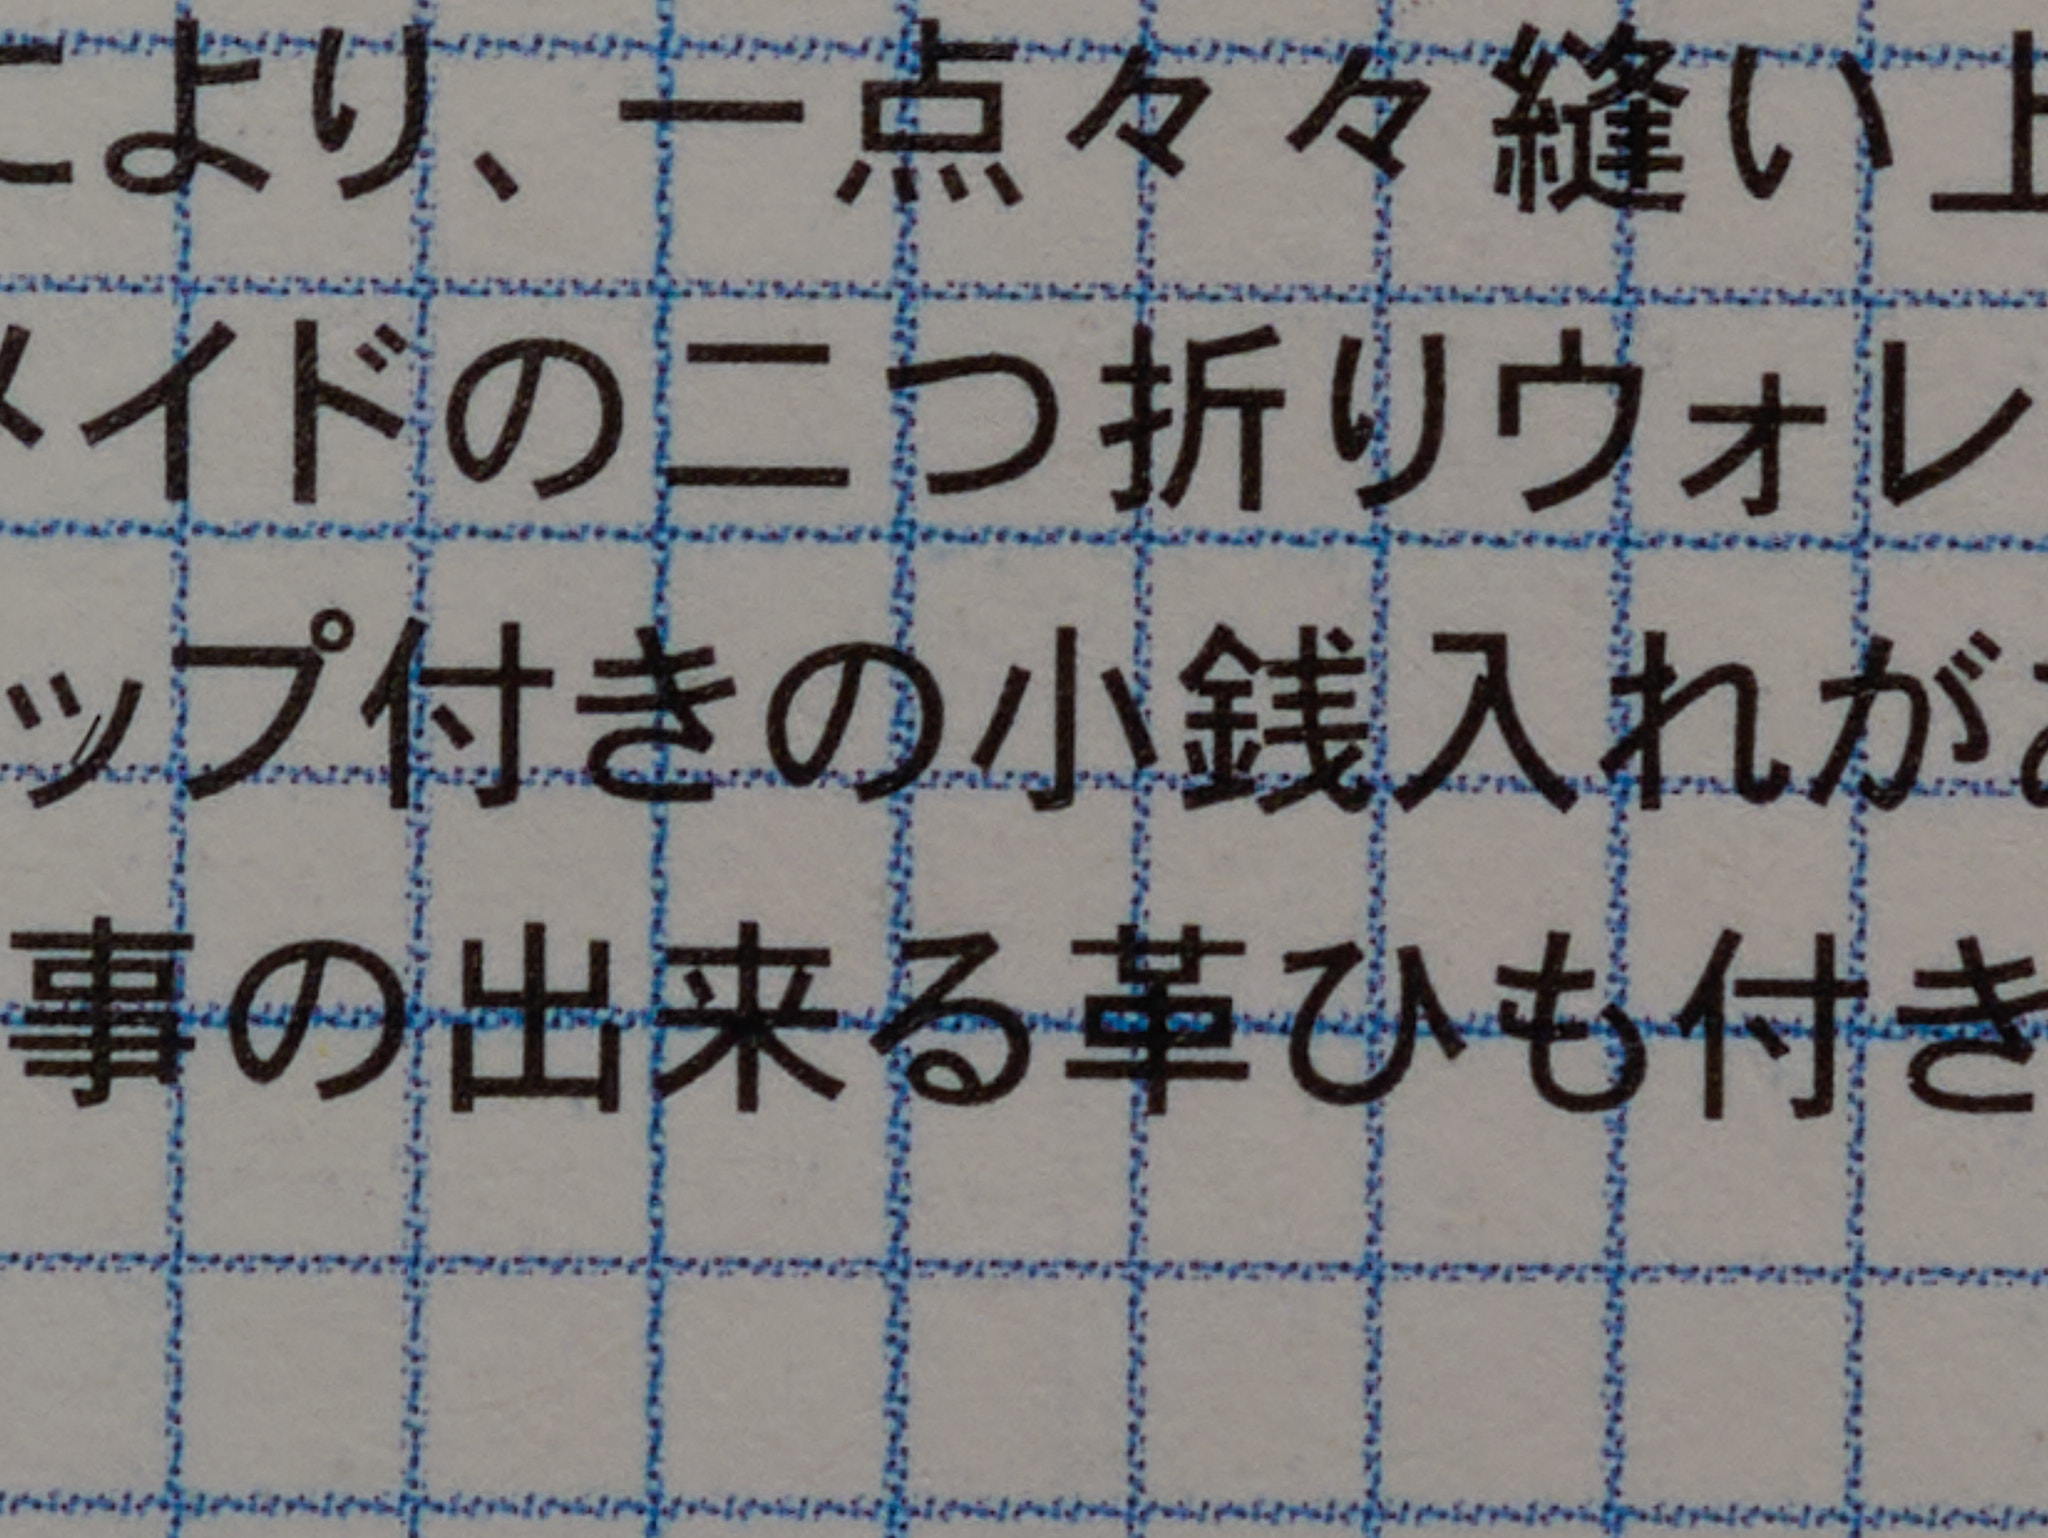 により、一点々々縫い上
メイドの二つ折りウォレ
ップ付きの小銭入れがあ
事の出来る革ひも付き